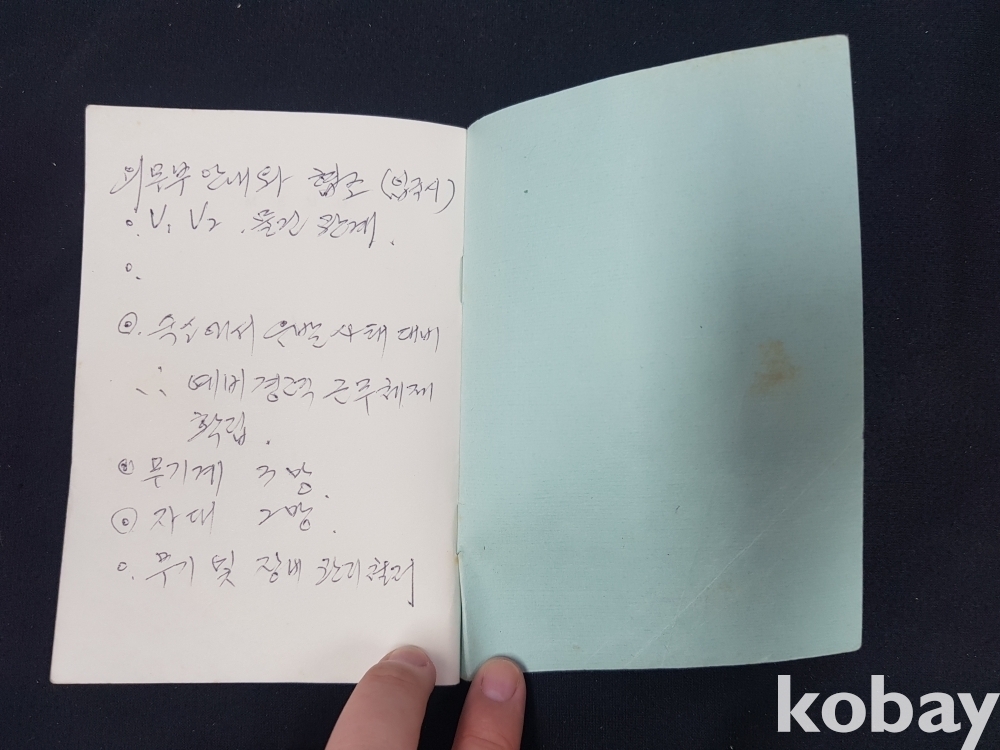 외무부 안내와 협조 (입국시)
○. V₁ V₂ . 물건 관계 .
○.
◎. 숙소에서 우발사태 대비
∴ 예비경력 근무체제
확립 .
◎ 무기계 3망.
◎ 자대 2망.
○. 무기 및 장비 관리철저
kobay